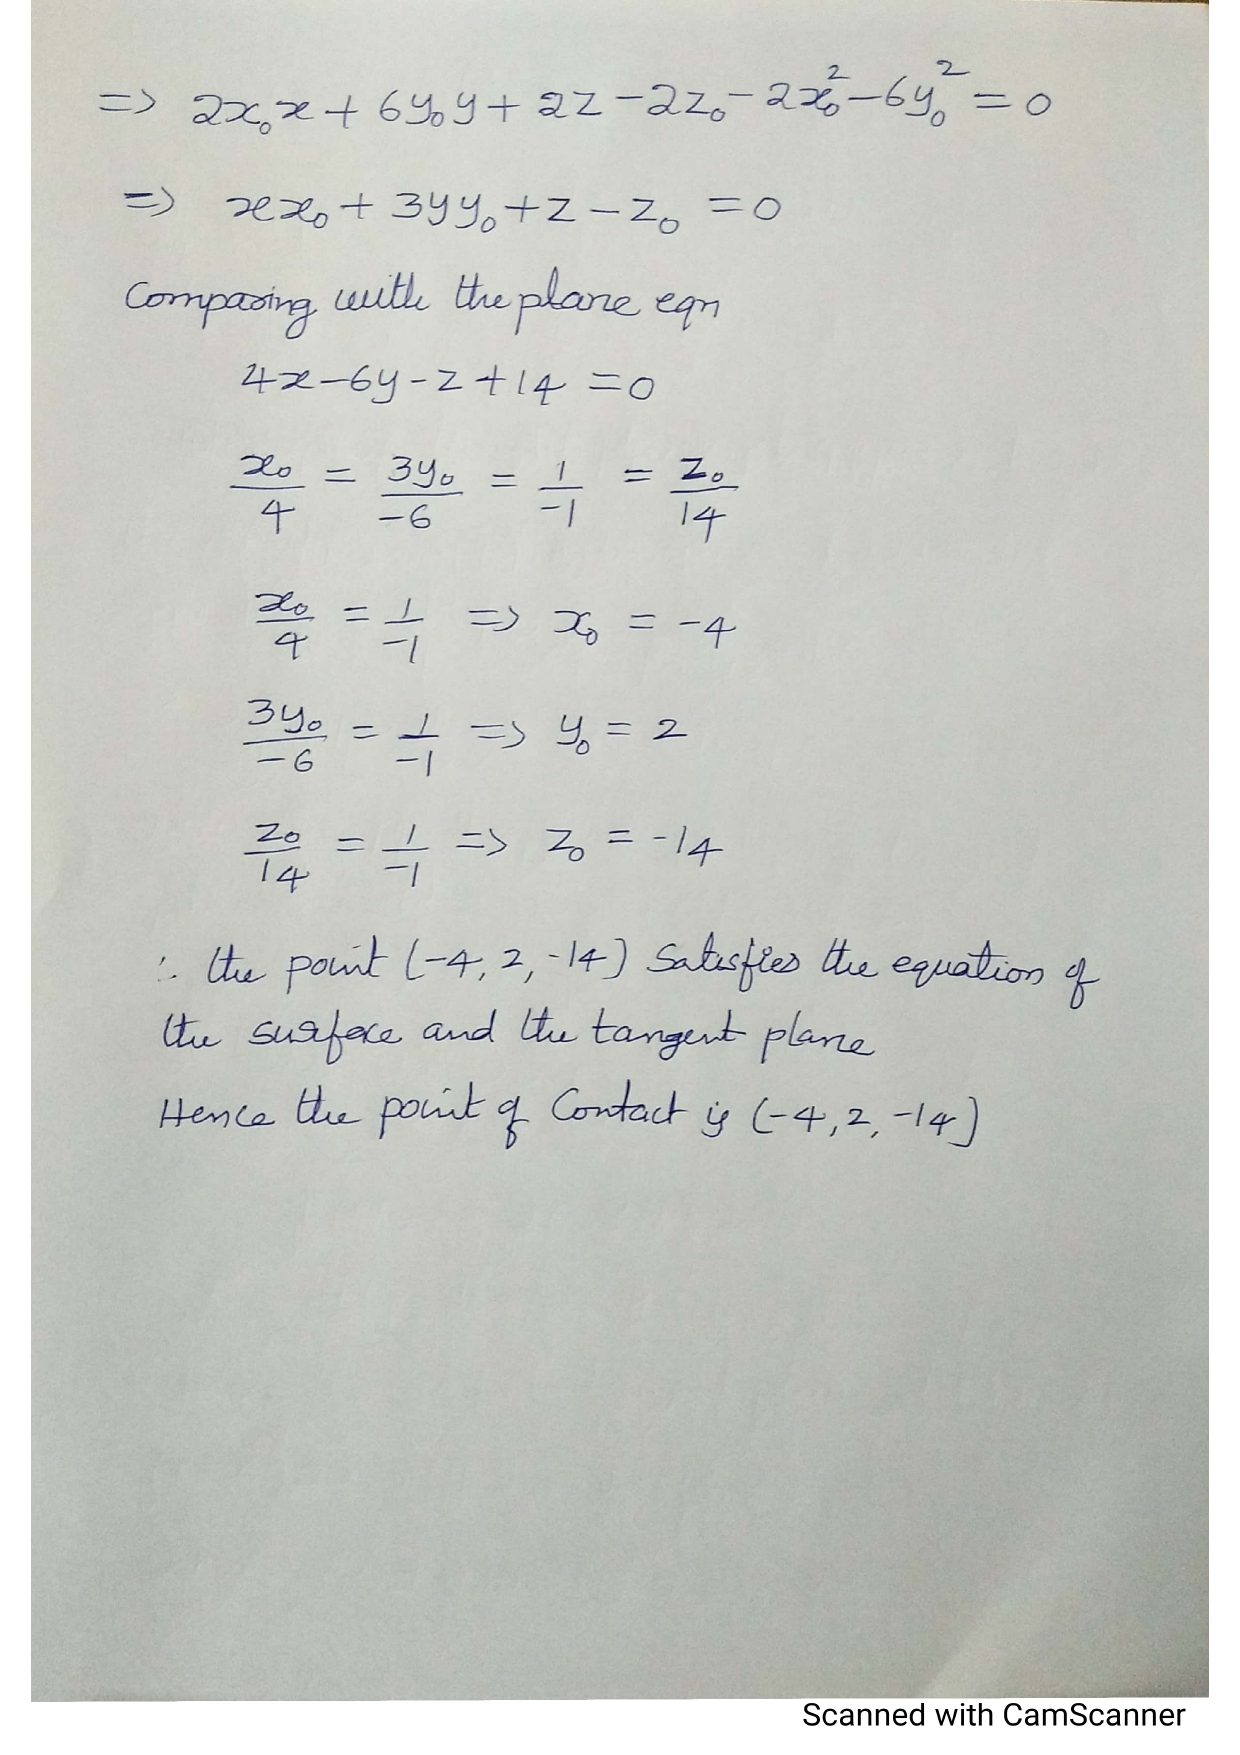 => 2x₀x + 6y₀y + 2z - 2z₀ - 2x₀² - 6y₀² = 0
=> xx₀ + 3yy₀ + z - z₀ = 0
Comparing with the plane eqn
4x - 6y - z + 14 = 0
x₀/4 = 3y₀/-6 = 1/-1 = z₀/14
x₀/4 = 1/-1 => x₀ = -4
3y₀/-6 = 1/-1 => y₀ = 2
z₀/14 = 1/-1 => z₀ = -14
∴ the point (-4, 2, -14) Satisfies the equation of
the surface and the tangent plane
Hence the point of Contact is (-4, 2, -14)
Scanned with CamScanner